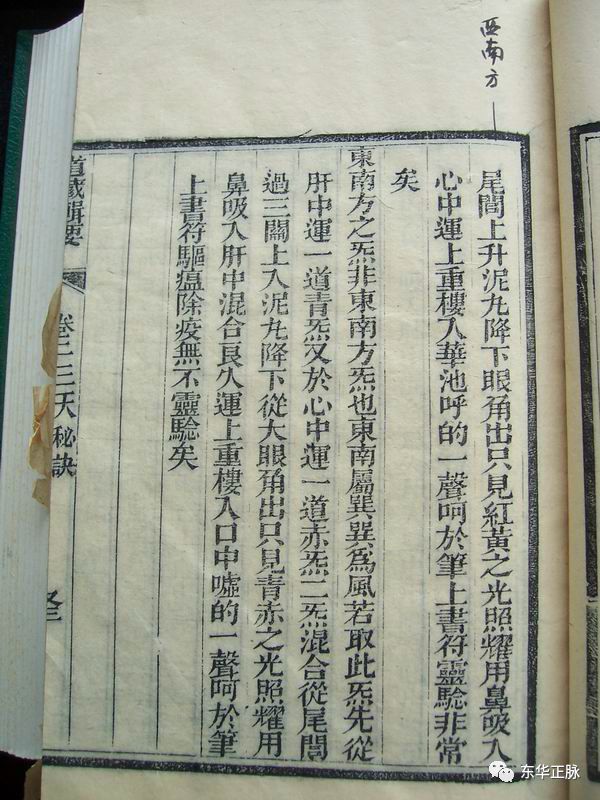 西南方
尾閭上升泥丸降下眼角出只見紅黃之光照耀用鼻吸入
心中運上重樓入華池呼的一聲呵於筆上書符靈驗非常
矣
東南方之炁非東南方炁也東南屬巽巽爲風若取此炁先從
肝中運一道青炁又於心中運一道赤炁二炁混合從尾閭
過三關上入泥丸降下從大眼角出只見青赤之光照耀用
鼻吸入肝中混合良久運上重樓入口中噓的一聲呵於筆
上書符驅瘟除疫無不靈驗矣
道藏輯要
卷二 三天秘訣
东华正脉